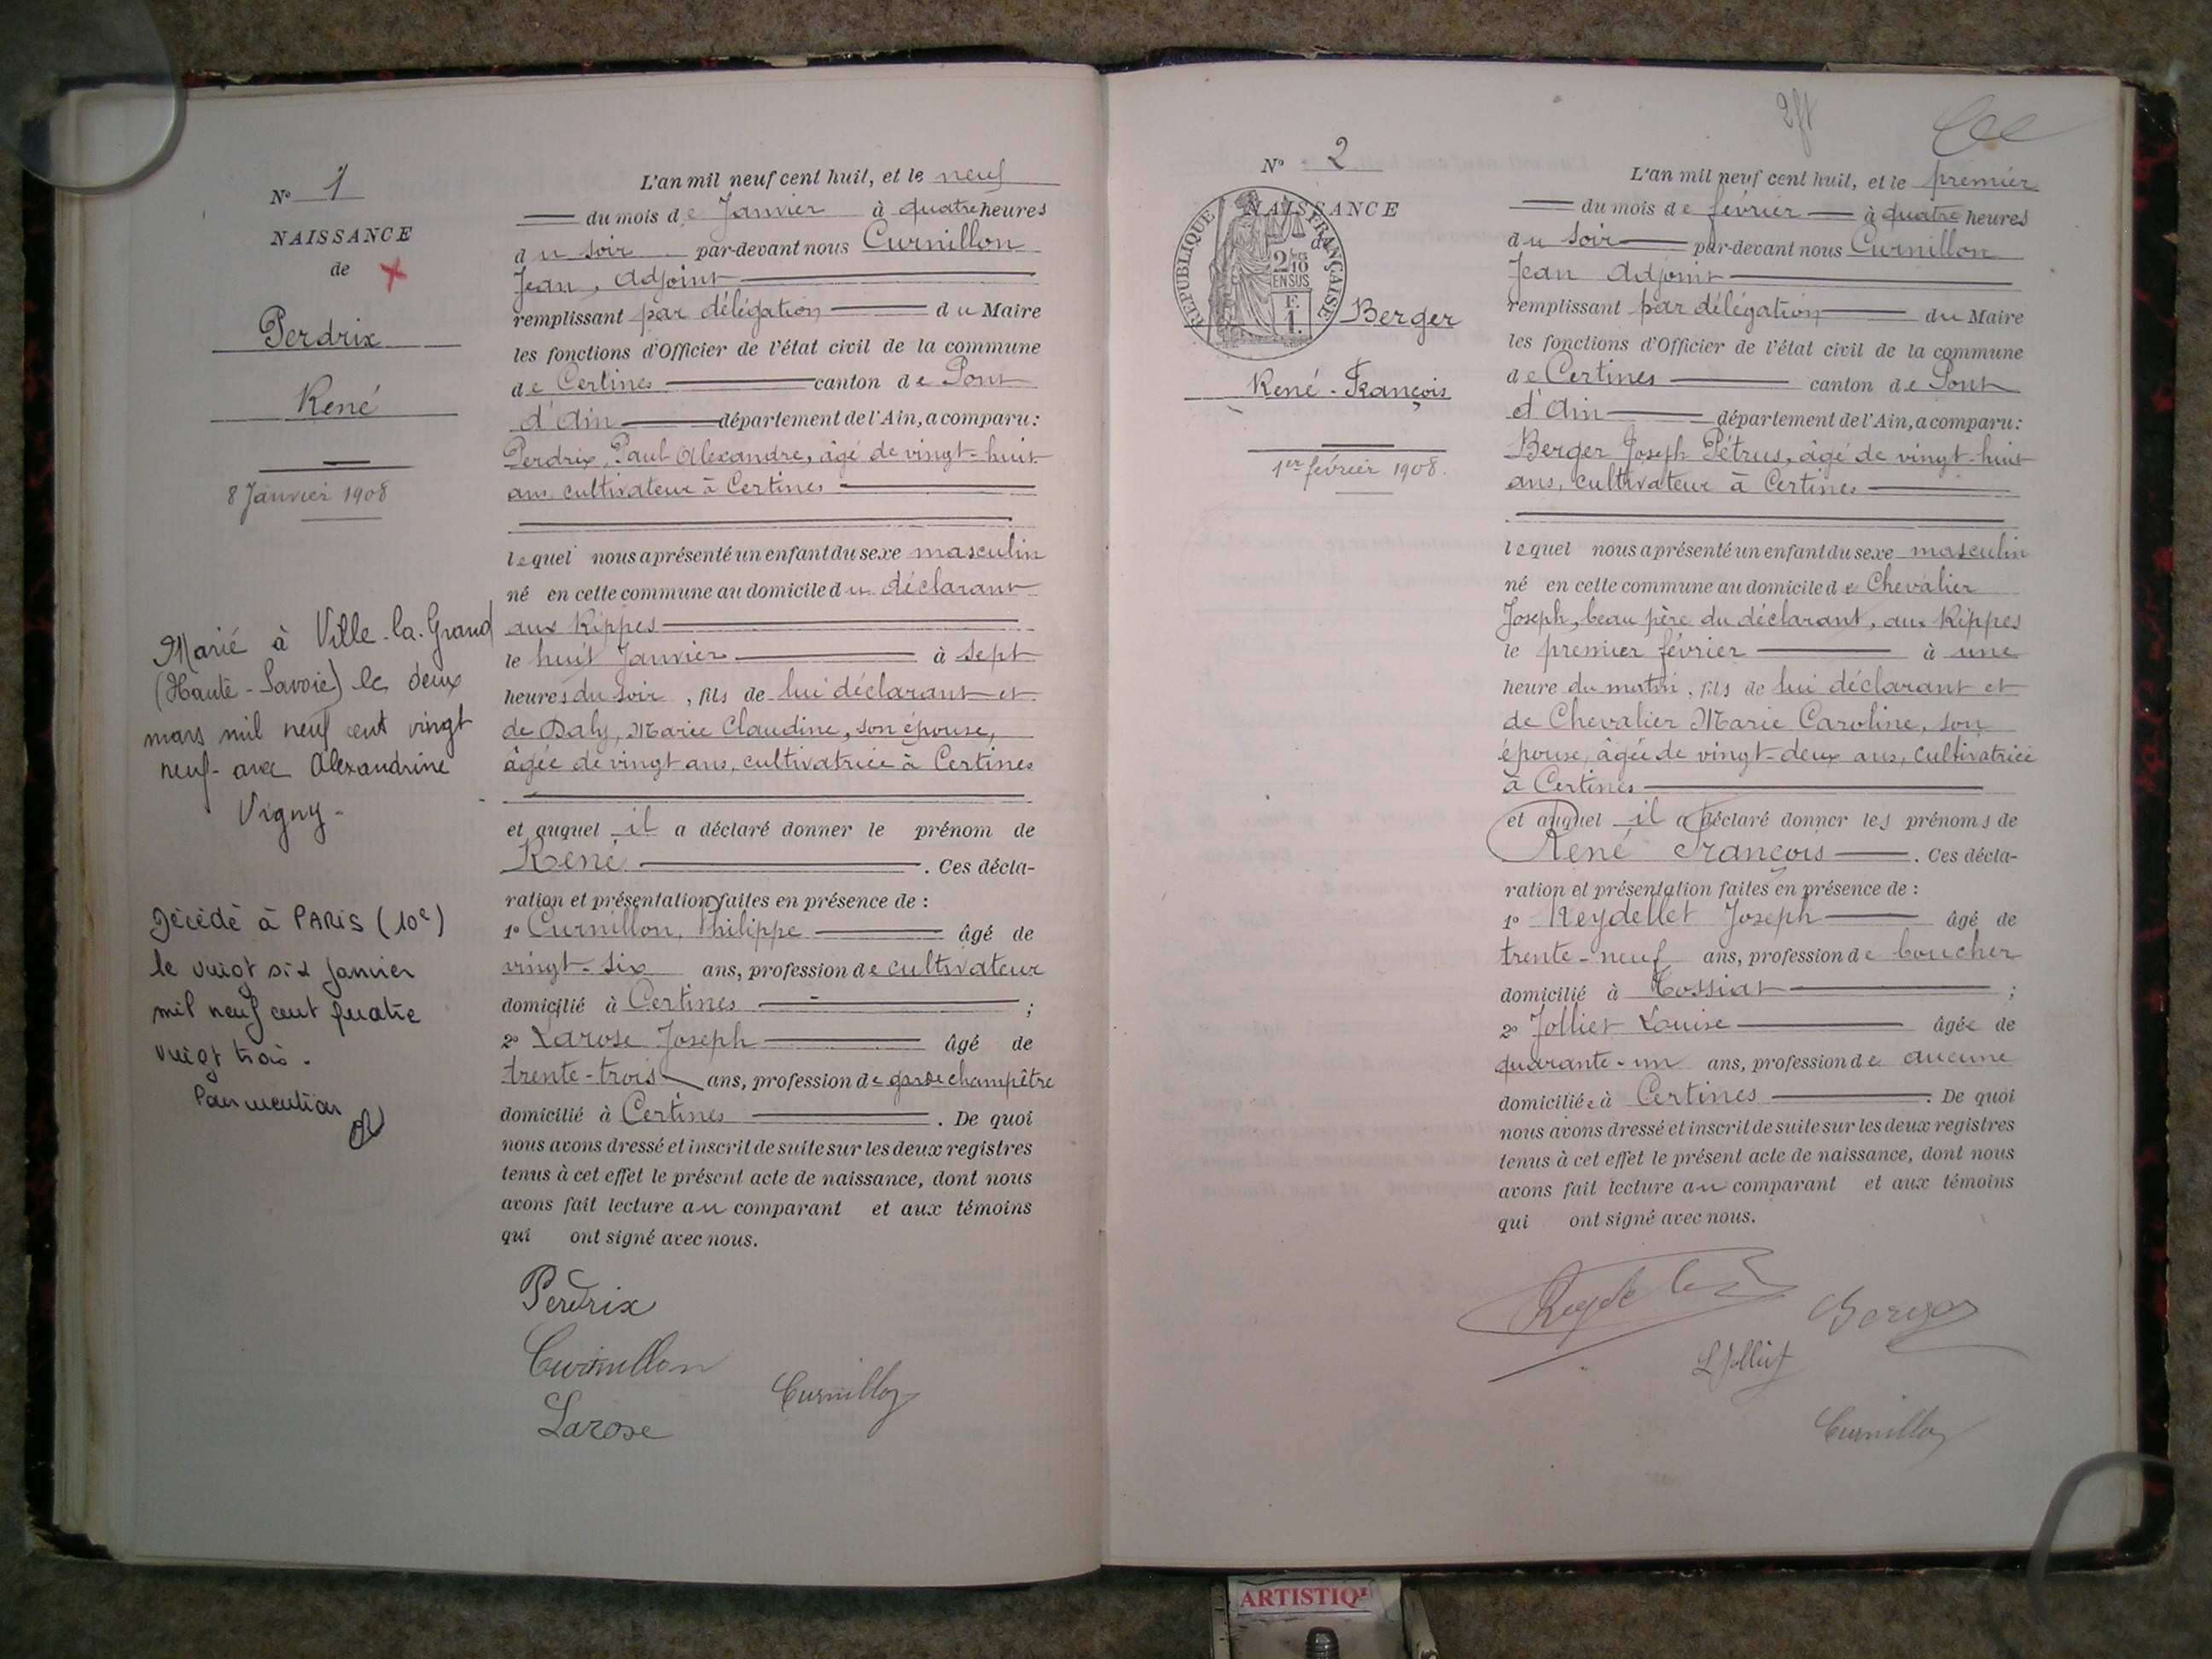 N° 1
NAISSANCE
de
Perdrix
René
8 Janvier 1908
Marié à Ville-la-Grand
(Haute-Savoie) le deux
mars mil neuf cent vingt
neuf avec Alexandrine
Vigny-
Décédé à PARIS (10e)
le vingt six janvier
mil neuf cent quatre
vingt trois.
Pour mention
L'an mil neuf cent huit, et le neuf
du mois de Janvier à quatre heures
du soir par-devant nous Curnillon
Jean, Adjoint
remplissant par délégation du Maire
les fonctions d'Officier de l'état civil de la commune
de Certines canton de Pont
d'Ain département de l'Ain, a comparu :
Perdrix, Paul Alexandre, âgé de vingt-huit
ans, cultivateur à Certines
lequel nous a présenté un enfant du sexe masculin
né en cette commune au domicile du déclarant
aux Rippes
le huit Janvier à sept
heures du soir, fils de lui déclarant et
de Daly, Marie Claudine, son épouse,
âgée de vingt ans, cultivatrice à Certines
et auquel il a déclaré donner le prénom de
René. Ces décla-
ration et présentation faites en présence de :
1° Curnillon, Philippe âgé de
vingt-six ans, profession de cultivateur
domicilié à Certines ;
2° Larose Joseph âgé de
trente-trois ans, profession de garde champêtre
domicilié à Certines. De quoi
nous avons dressé et inscrit de suite sur les deux registres
tenus à cet effet le présent acte de naissance, dont nous
avons fait lecture au comparant et aux témoins
qui ont signé avec nous.
Perdrix
Curnillon
Curnillon
Larose
N° 2
NAISSANCE
de
RÉPUBLIQUE FRANÇAISE
2/10
EN SUS
Berger
René-François
1er février 1908.
L'an mil neuf cent huit, et le premier
du mois de février à quatre heures
du soir par-devant nous Curnillon
Jean Adjoint
remplissant par délégation du Maire
les fonctions d'Officier de l'état civil de la commune
de Certines canton de Pont
d'Ain département de l'Ain, a comparu :
Berger Joseph Pétrus, âgé de vingt-huit
ans, cultivateur à Certines
lequel nous a présenté un enfant du sexe masculin
né en cette commune au domicile de Chevalier
Joseph, beau père du déclarant, aux Rippes
le premier février à une
heure du matin, fils de lui déclarant et
de Chevalier Marie Caroline, son
épouse, âgée de vingt-deux ans, cultivatrice
à Certines
et auquel il a déclaré donner les prénoms de
René François. Ces décla-
ration et présentation faites en présence de :
1° Reydellet Joseph âgé de
trente-neuf ans, profession de boucher
domicilié à Tossiat ;
2° Jolliet Louise âgée de
quarante-un ans, profession de aucune
domiciliée à Certines. De quoi
nous avons dressé et inscrit de suite sur les deux registres
tenus à cet effet le présent acte de naissance, dont nous
avons fait lecture au comparant et aux témoins
qui ont signé avec nous.
Berger
L Jolliet
Curnillon
ARTISTIQ